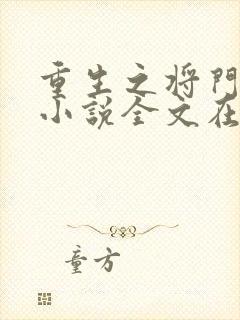 重生之将門
小説全文在
童方